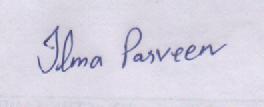 Ilma Parveen